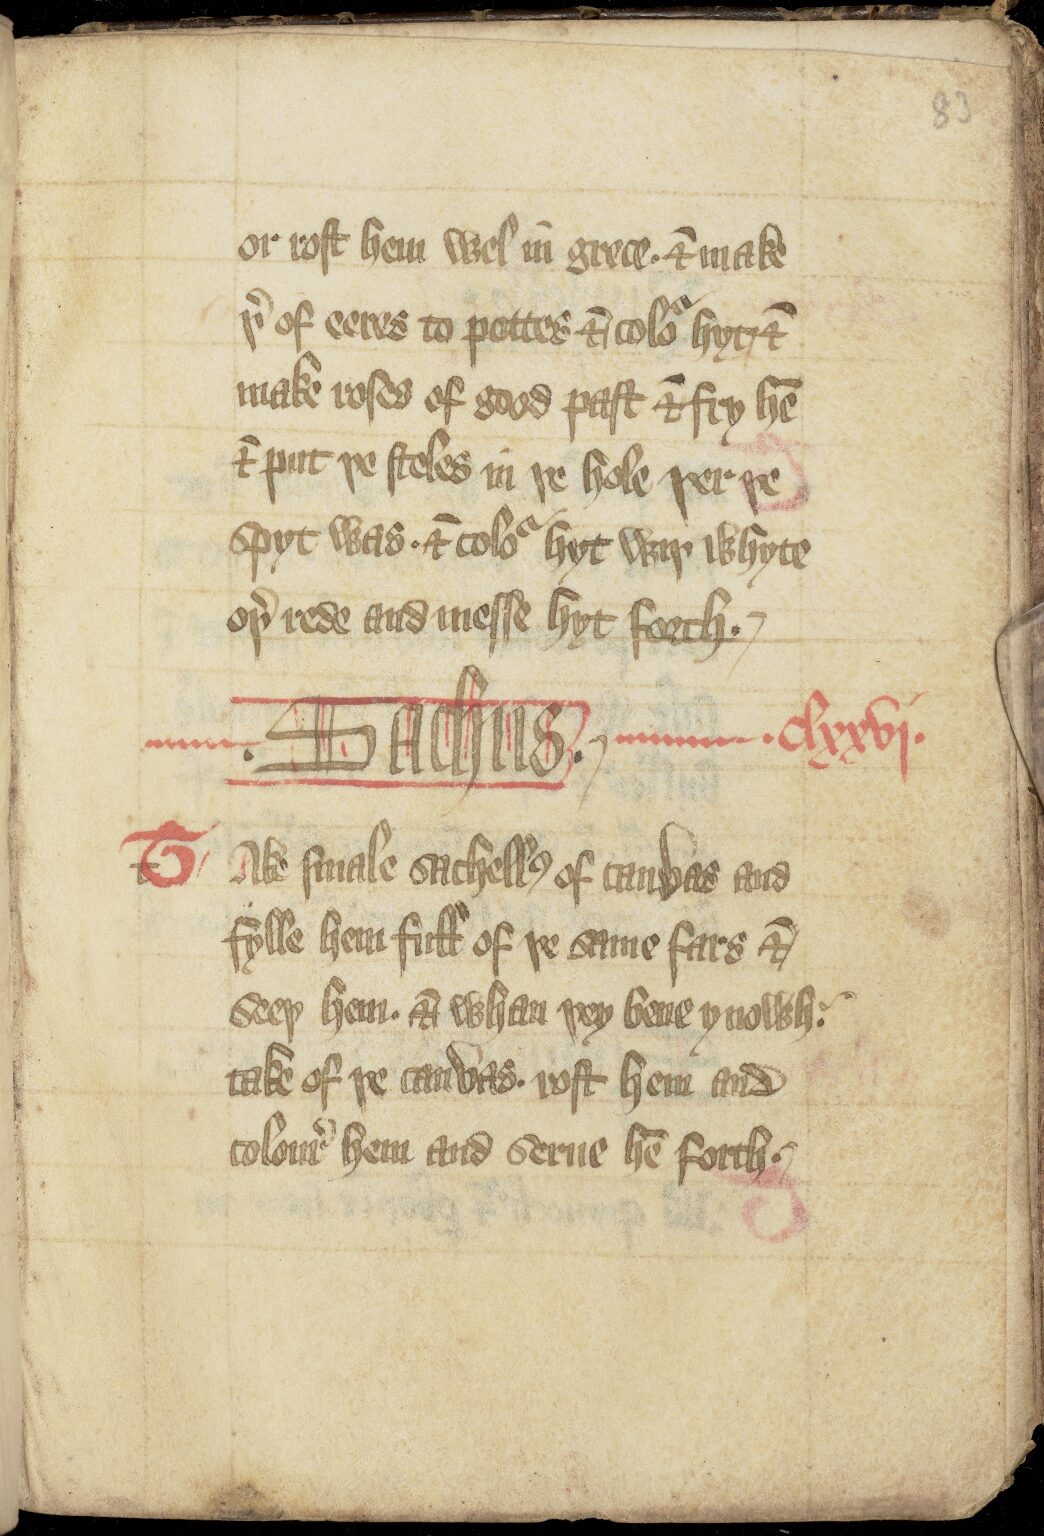 83
or rost hem wel in grece · & make
þ͛ of eeres to pottes & colo͛ hyt, &
make roses of good past & fry hē
& put þe steles in þe hole þer þe
spyt was · & colo͛ hyt wiþ whyte
oþ͛ rede and messe hyt forth ·
· Sachus · · clxxvj ·
t TAke smale sachell͛ of canvas and
fylle hem full of þe same fars &
seeþ hem · & whan þey bene ynowh ·
take of þe canvas · rost hem and
colour͛ hem and serue hē forth ·